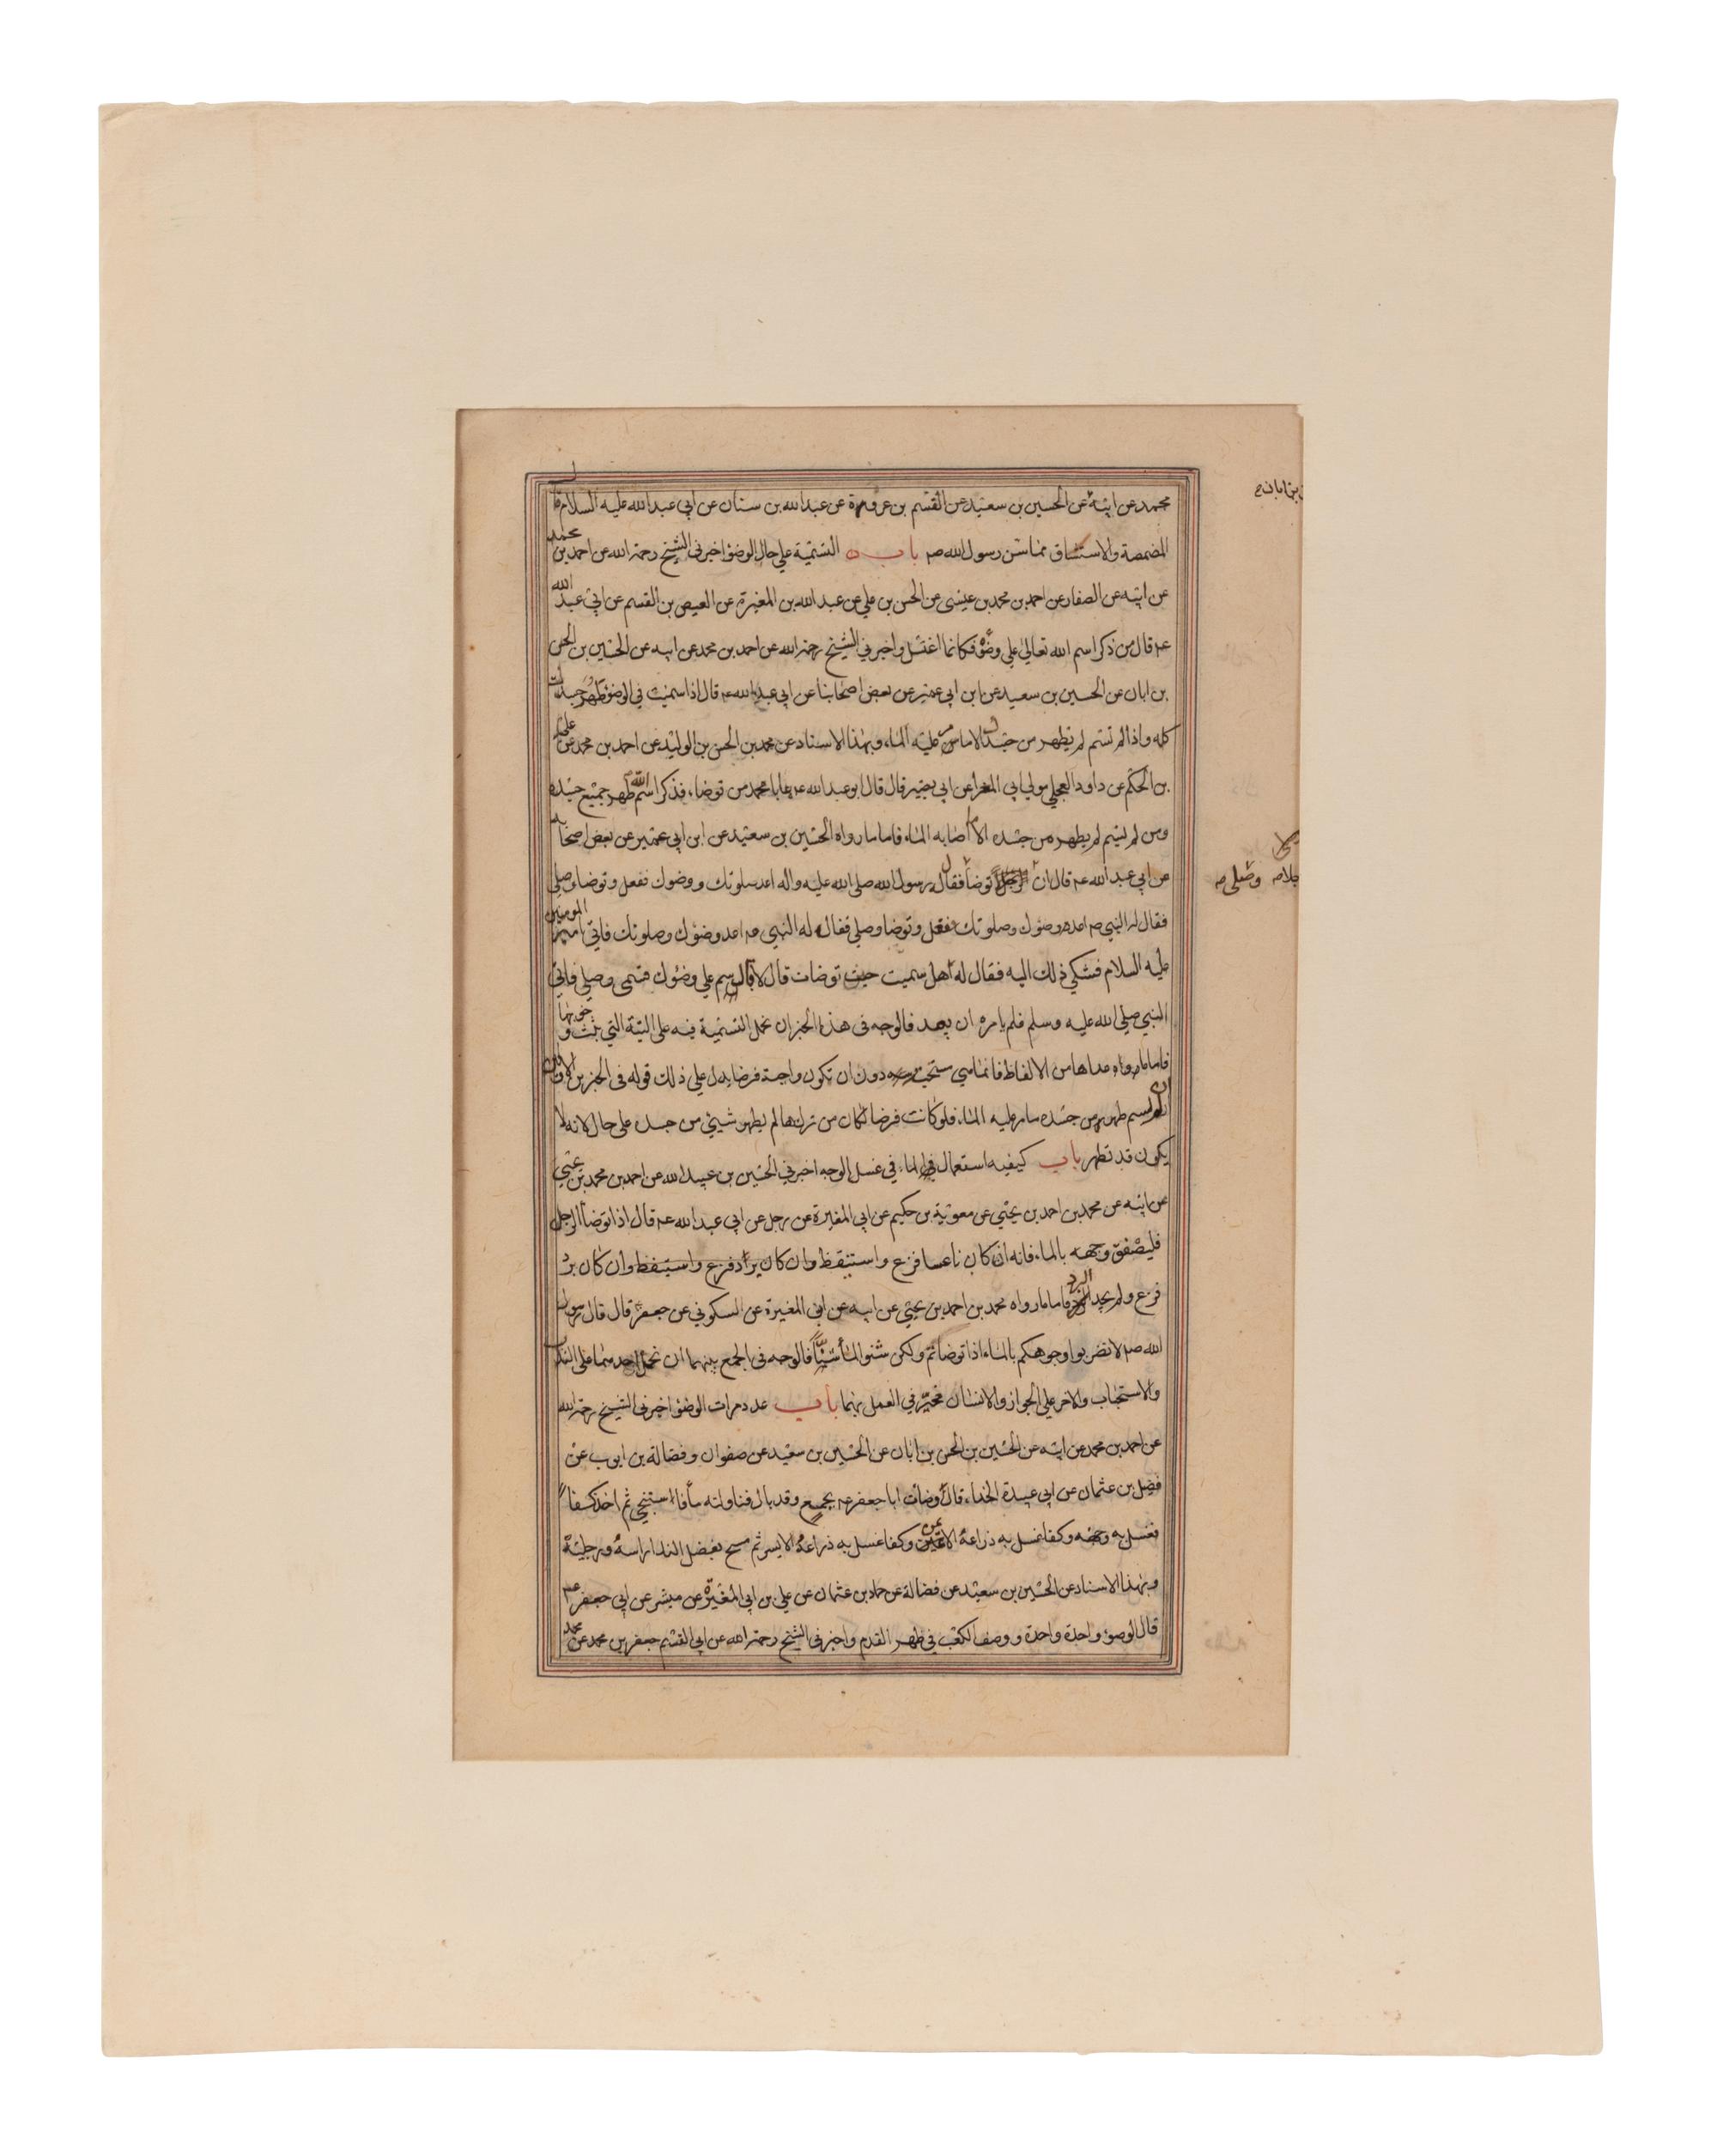 محمد عن ابيه عن الحسين بن سعيد عن القسم بن عروة عن عبد الله بن سنان عن ابي عبد الله عليه السلام قا
ل
المضمضة والاستنشاق مما سن رسول الله صم باب التسمية علي حال الوضؤ اخبرني الشيخ رحمة الله عن احمد بن محمد
عن ابيه عن الصفار عن احمد بن محمد بن عيسى عن الحسن بن علي عن عبد الله بن المغيرة عن العيص بن القسم عن ابي عبد الله
عم قال من ذكر اسم الله تعالي علي وضؤه فكانما اغتسل واخبرني الشيخ رحمة الله عن احمد بن محمد عن ابيه عن الحسين بن الحسن
بن ابان عن الحسين بن سعيد عن ابن ابي عمير عن بعض اصحابنا عن ابي عبد الله عم قال اذا سميت في الوضؤ طهر جسدك
كله واذا لم تسم لم يطهر من جسدك الا ما مر عليه الماء وبهذا الاسناد عن محمد بن الحسن بن الوليد عن احمد بن محمد عن علي
بن الحكم عن داود العجلي مولي ابي المغرا عن ابي بصير قال قال ابو عبد الله عم يا با محمد من توضا، فذكر اسم الله طهر جميع جسده
ومن لم يسم لم يطهر من جسده الا ما اصابه الماء فاما ما رواه الحسين بن سعيد عن ابن ابي عمير عن بعض اصحابه
عن ابي عبد الله عم قال ان توضا فقال رسول الله صلي الله عليه واله اعد صلوتك ووضوك ففعل وتوضا وصلي
فقال له النبي صم اعد وضوك وصلوتك ففعل وتوضا وصلي فقال له النبي صم اعد وضؤك وصلوتك فاتي امير المومنين
عليه السلام فشكي ذلك اليه فقال له هل سميت حيث توضات قال لا قال سم علي وضؤك فسمى وصلي فاتي
النبي صلي الله عليه وسلم فلم يامره ان يعيد فالوجه فى هذا الخبر ان نحمل التسمية فيه على النية التي
فاما ما رواه عداها من الالفاظ فانما هي مستحبة دون ان تكون واجبة فرضا يدل علي ذلك قوله فى الخبرين الاولين
ان لم يسم طهر من جسده ما مر عليه الماء فلو كانت فرضا لكان من تركها لم يطهر شيئ من جسده على حال لانه لا
يكون قد تطهر باب كيفيه استعمال الماء في غسل الوجه اخبرني الحسين بن عبيد الله عن احمد بن محمد بن يحيى
عن ابيه عن محمد بن احمد بن يحيي عن معوية بن حكيم عن ابي المغيرة عن رجل عن ابي عبد الله عم قال اذا توضأ الرجل
فليصفق وجهه بالماء فانه ان كان ناعسا فزع واستيقظ وان كان براد فزع واستيقظ وان كان برد
فزع ولم يجد البرد فاما ما رواه محمد بن احمد بن يحيي عن ابيه عن ابن المغيرة عن السكوني عن جعفر قال قال رسول
الله صم لا تضربوا وجوهكم بالماء اذا توضاتم ولكن شنو الماء شنا فالوجه فى الجمع بينهما ان نحمل احدهما على الندب
والاستحباب والاخر علي الجواز والانسان مخير في العمل بهما باب عدد مرات الوضؤ اخبرني الشيخ رحمة الله
عن احمد بن محمد عن ابيه عن الحسين بن الحسن بن ابان عن الحسين بن سعيد عن صفوان وفضالة بن ايوب عن
فضيل بن عثمان عن ابي عبيدة الحذاء قال وضأت ابا جعفر عم بجمع وقد بال فناولته ماء فاستنجي ثم اخذ كفا
فغسل به وجهه وكفا غسل به ذراعه الايمن وكفا غسل به ذراعه الايسر ثم مسح بفضل الندا راسه ورجليه
وبهذا الاسناد عن الحسين بن سعيد عن فضالة عن حماد بن عثمان عن علي بن ابي المغيرة عن ميسر عن ابي جعفر عم
قال الوضؤ واحدة واحدة ووصف الكعب في ظهر القدم واخبرني الشيخ رحمة الله عن ابي القسم جعفر بن محمد عن محمد
بن ابان ح
وصلي صم